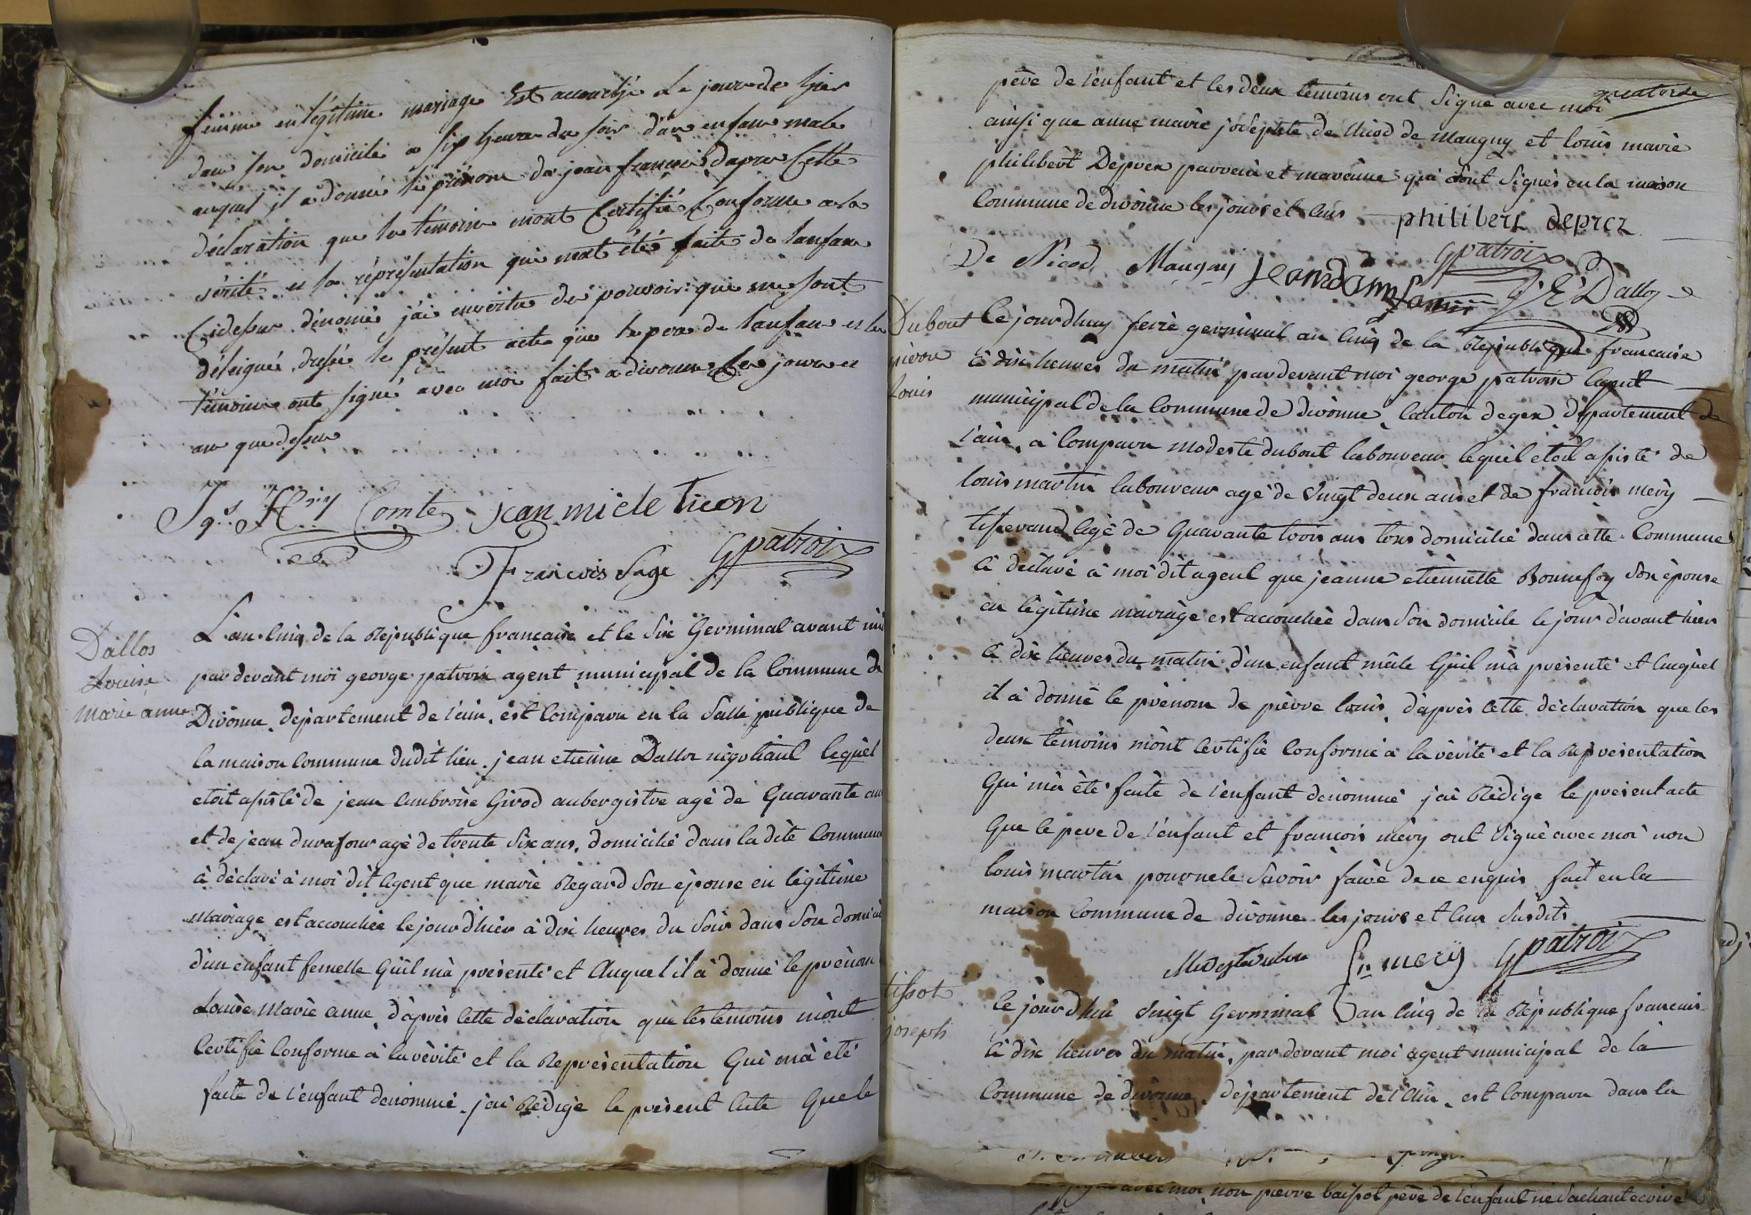 femme en légitime mariage est accouchée le jour de hier
dans son domicile a six heures du soir d'un enfant male
auquel il a donné le prénom de jean françois d'apres cette
déclaration que les témoins mont certifié conforme a la
vérité et la représentation qui mat été faite de lanfant
cidessus dénomé j'ai envertu des pouvoirs qui me sont
délégués dressé le présent acte que le pere de lanfant et les
témoins ont signé avec moi fait a divonne les jours et
an que dessus
Comte jean michele
françois Sage G patroix
Dallos
Louise
marie anne
L'an cinq de la république francaise et le six Germinal avant midi
par devant moi george patroix agent municipal de la Commune de
Divonne département de l'ain, est Comparu en la Salle publique de
la maison Commune dudit lieu jean etienne Dallos négotiant lequel
etoit assisté de jean ambroise Girod aubergistre agé de Quarante ans
et de jean duvafour agé de trente Six ans, domicilié dans la dite Commune
à déclaré à moi dit Agent que marie Régard Son épouse en légitime
mariage est accouchée le jour d'hier à dix heures du Soir dans Son domicile
d'un enfant femelle Quil m'à présenté et Auquel il à donné le prénom
Louise Marie anne, d'après cette déclaration que les témoins m'ont
Certifié Conforme à la vérité et la Représentation Qui m'à été
faite de l'enfant dénommé, j'ai Rédigé le présent Acte Que le
quatorze
père de l'enfant et les deux témoins ont Signé avec moi
ainsi que anne marie josephte de Nicod de Maugny et louis marie
philibert Deprez parrein et mareinne qui Sont Signés en la maison
Commune de divonne les jours et ans philibert deprez
De Nicod Maugny G patroix
J E Dallos
Dubout
pierre
Louis
Ce jourdhuy seize germinal an Cinq de la République francaise
à dix heures du matin par devant moi george patroix agent
municipal de la Commune de divonne, Canton de gex département de
l'ain, à Comparu modeste dubout laboureur lequel étoit assisté de
louis martin laboureur agé de Vingt deux ans et de françois mery
tisserand agé de Quarante trois ans tous domicilié dans cette Commune
à déclaré à moi dit agent que jeanne etiennette Bonnefoy Son épouse
en légitime mariage est accouchée dans Son domicile le jour d'avant hier
à dix heures du matin d'un enfant mâle Quil m'à présenté et Auquel
il à donné le prénom de pierre louis, d'après cette déclaration que les
deux témoins m'ont Certifié Conforme à la vérité et la Représentation
Qui m'à été faite de l'enfant dénommé j'ai Rédigé le présent acte
Que le pere de l'enfant et francois mery ont Signé avec moi non
louis martin pour ne le Savoir faire de ce enquis fait en la
maison Commune de divonne les jours et ans Susdits
Modeste dubou fr. mery G patroix
tissot
joseph
Ce jourdhui Vingt Germinal an Cinq de la République francais
à dix heures du matin, par devant moi agent municipal de la
Commune de divonne, département de l'Ain, est Comparu dans la
avec moi non pierre père de l'enfant ne Sachant ecrire